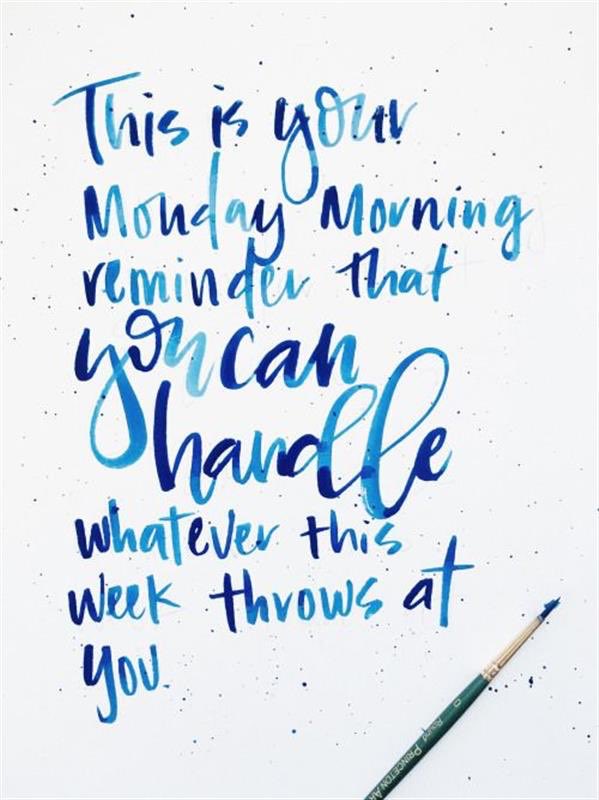 This is your
Monday Morning
reminder that
you can
handle
whatever this
week throws at
you.
0 Round PRINCETON AR